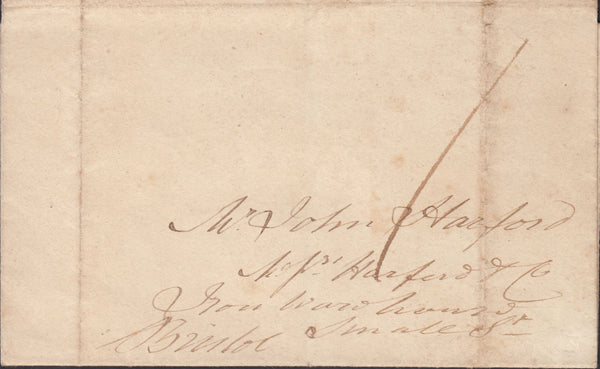 Mr. John Harford
Messrs. Harford & Co
Iron Warehouse
Bristol Small St